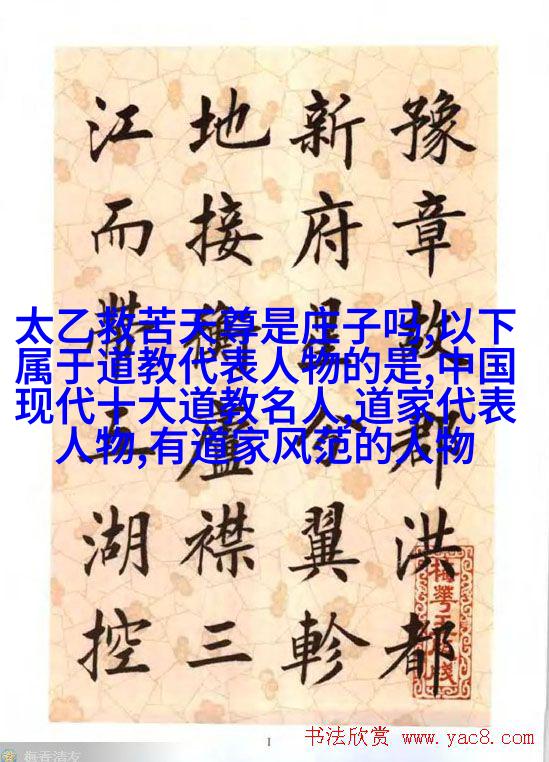 豫章故郡洪都
新府星分翼軫
地接衡廬襟三
江而帶五湖控
太乙救苦天尊是庄子吗,以下
属于道教代表人物的是,中国
现代十大道教名人,道家代表
人物,有道家风范的人物
1
书法欣赏 www.yac8.com
梅香清友